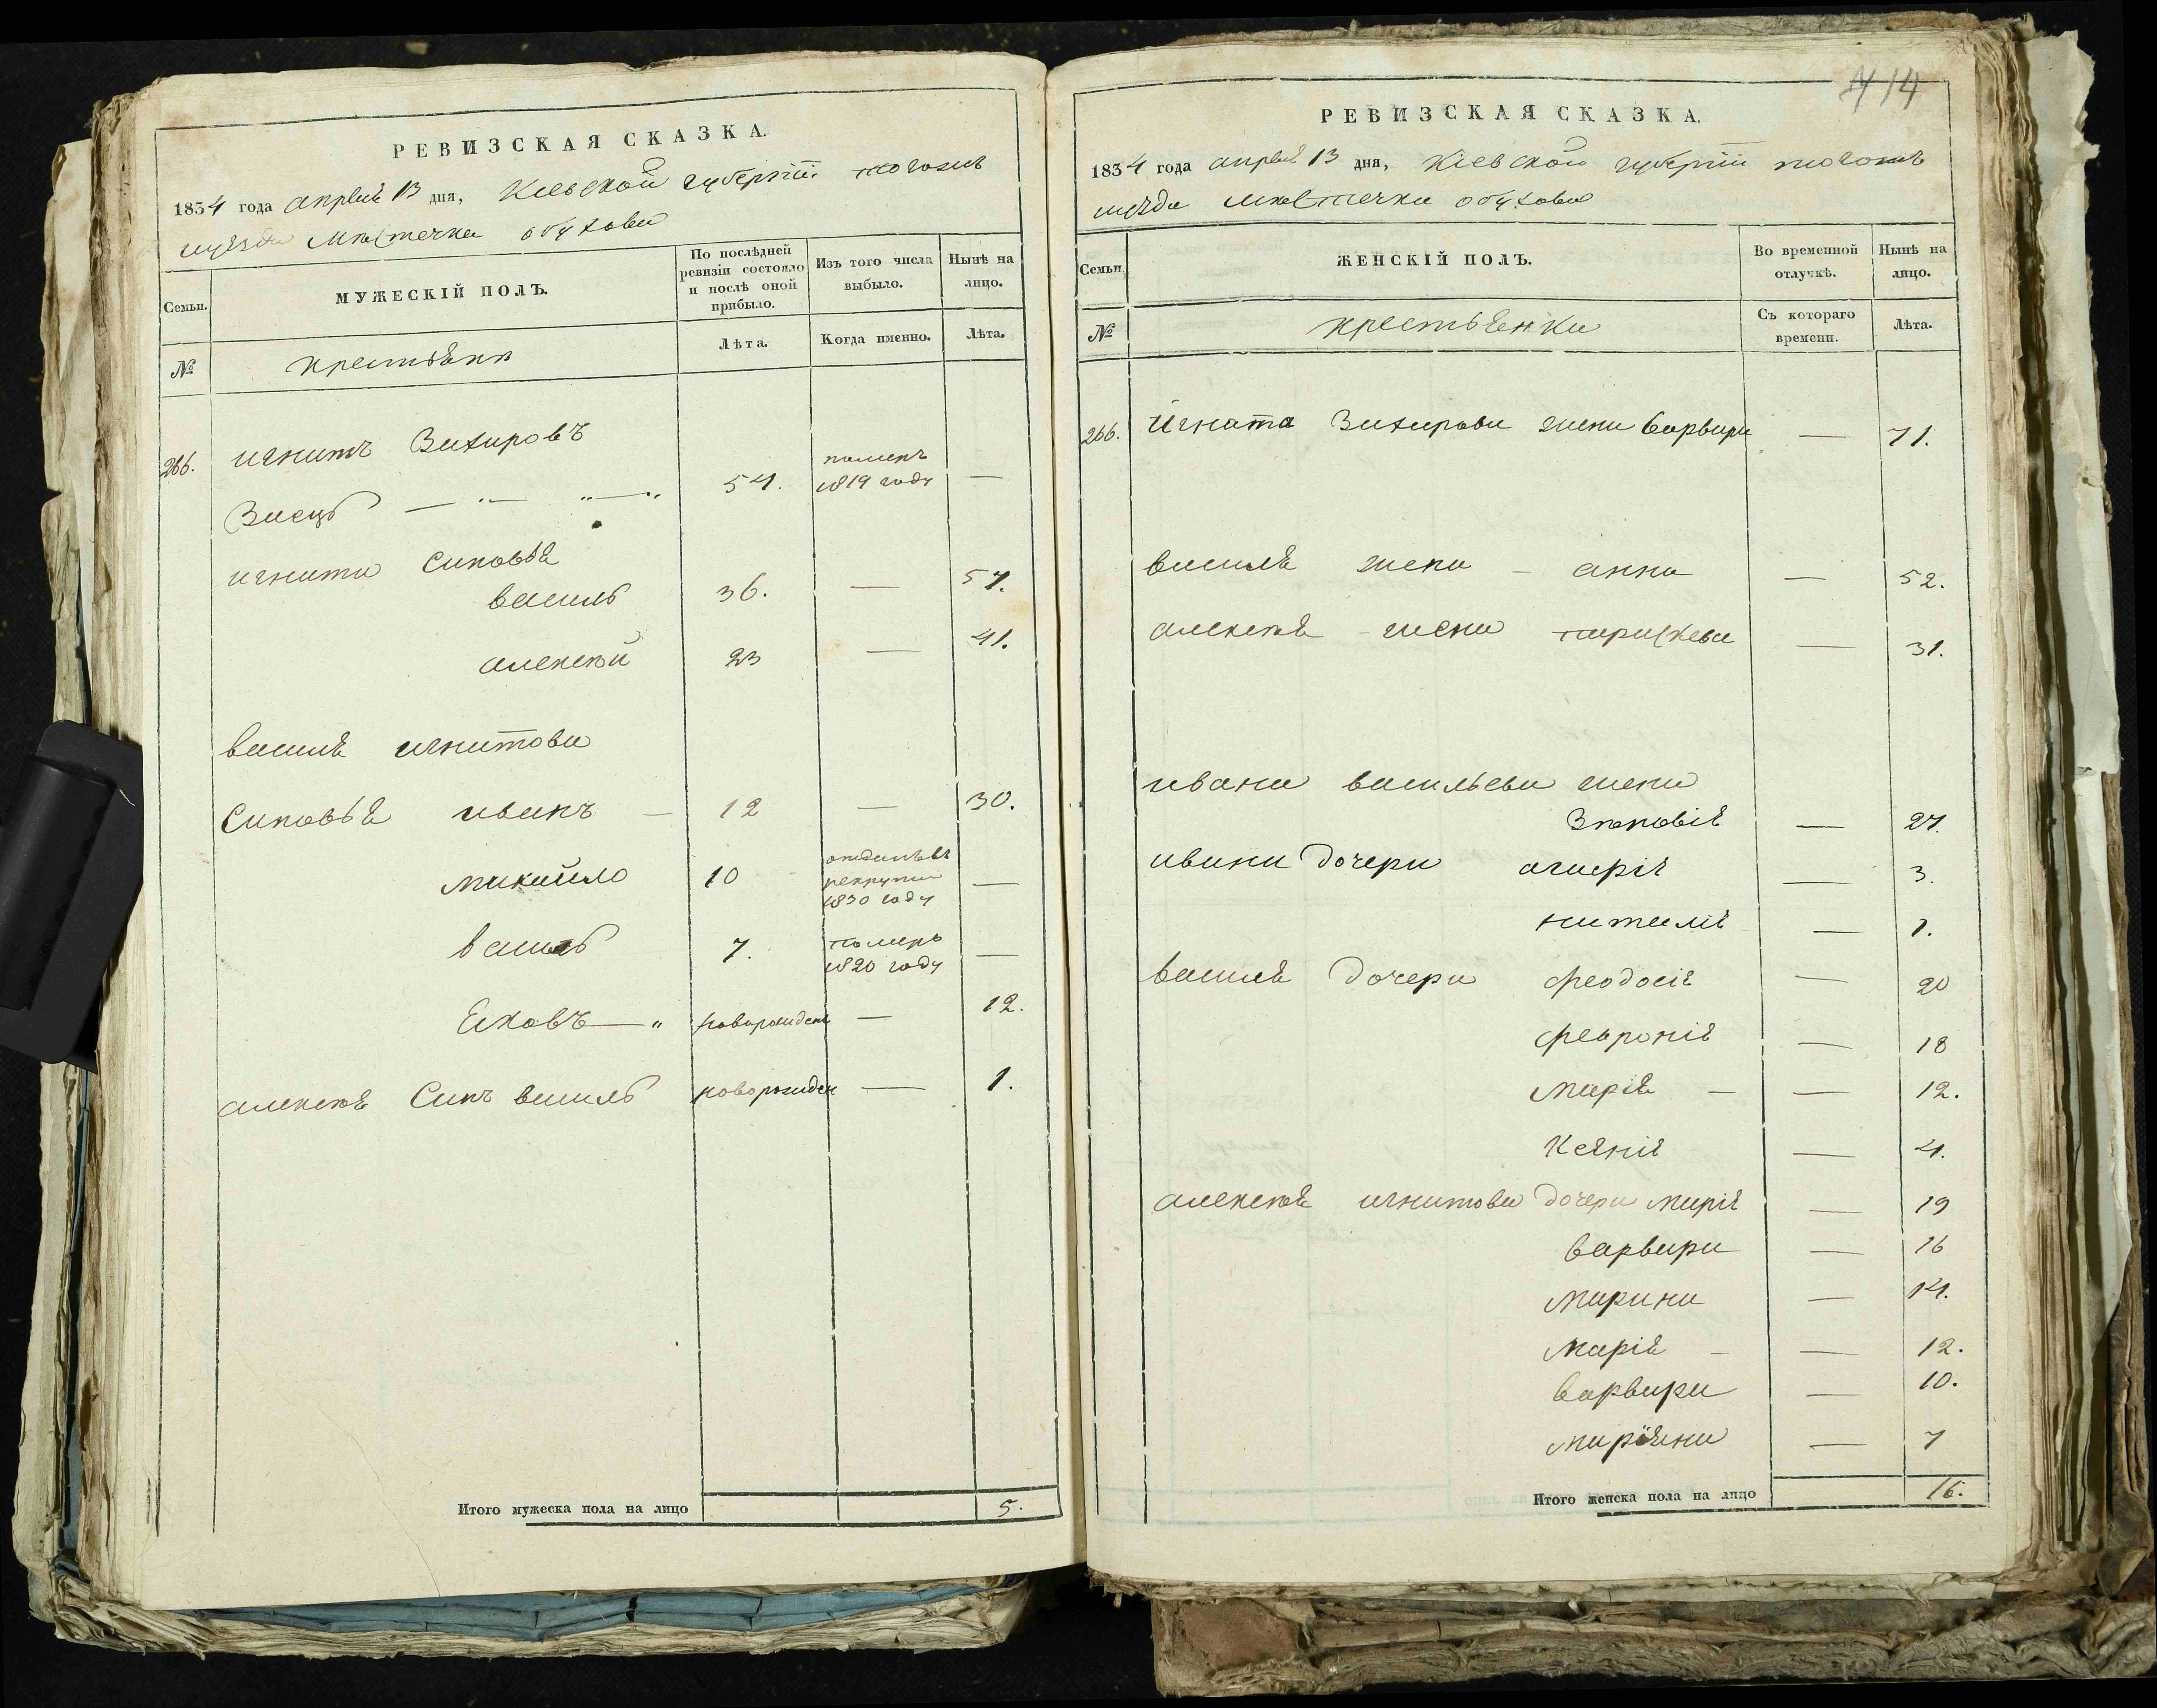 РЕВИЗСКАЯ СКАЗКА.
1834 года апреля 13 дня, Кіевской губерніи тогожъ
уезда Мѣстечка обухова
Семьи.
МУЖЕСКІЙ ПОЛЪ.
По послѣдней ревизіи состояло и послѣ оной прибыло.
Изъ того числа выбыло.
Нынѣ на лицо.
№
крестьяне
Лѣта.
Когда именно.
Лѣта.
266. игнатъ Захаровъ
Заецъ 54. померъ 1819 году —
игната Сыновья
василь 36. — 54.
алексѣй 23 — 41.
василя игнатова
Сыновья иванъ — 12 — 30.
михайло 10 отданъ въ рекруты 1830 году —
василь 7. померъ 1820 году —
Яковъ — " новорожден — 12.
алексѣя Сынъ василь новорожден — 1.
Итого мужеска пола на лицо 5.
414
РЕВИЗСКАЯ СКАЗКА.
1834 года апреля 13 дня, Кіевской губерніи тогожъ
уезда Мѣстечка обухова
Семьи.
ЖЕНСКІЙ ПОЛЪ.
Во временной отлучкѣ.
Нынѣ на лицо.
№
крестьянки
Съ котораго времени.
Лѣта.
266. Игната Захарова жена варвара — 71.
василя жена — анна — 52.
алексѣя — жена параскева — 31.
ивана васильева жена
Зѣновія — 24.
ивана дочери агафія — 3.
наталія — 1.
василя дочери феодосія — 20
февронія — 18
марія — — 12.
Ксенія — 4.
алексѣя игнатова дочери марія — 19
варвара — 16
марина — 14.
марія — — 12.
варвара — 10.
маріяна — 7
Итого женска пола на лицо 16.